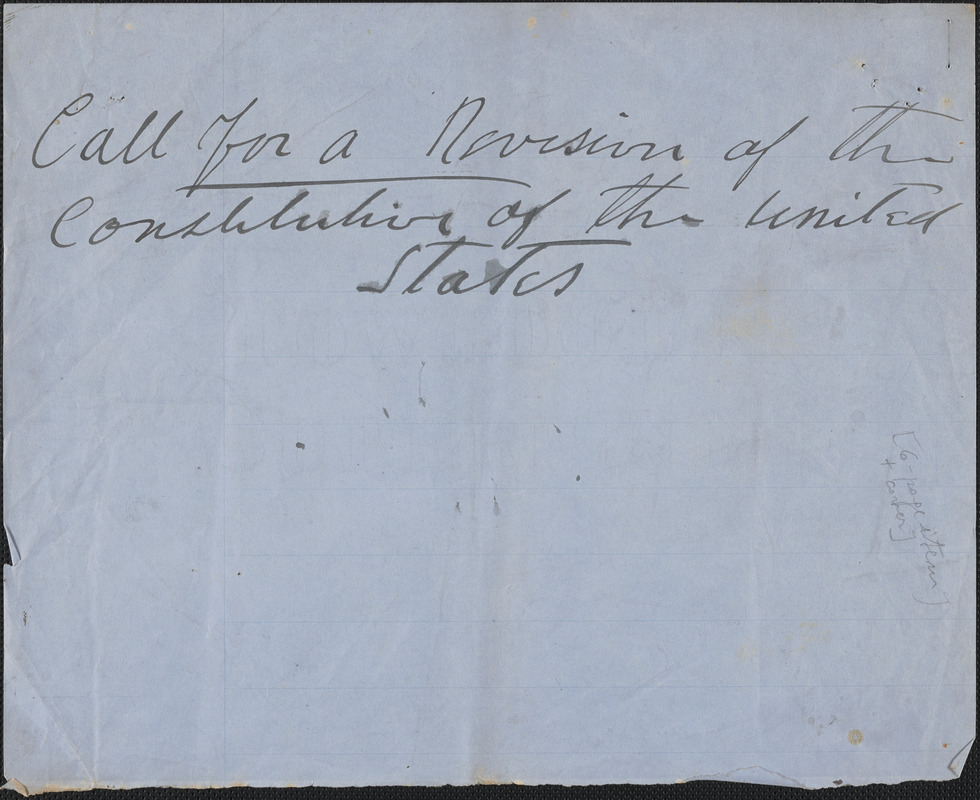 Call for a Revision of the
Constitution of the United
States
[6-page item
+ cover]